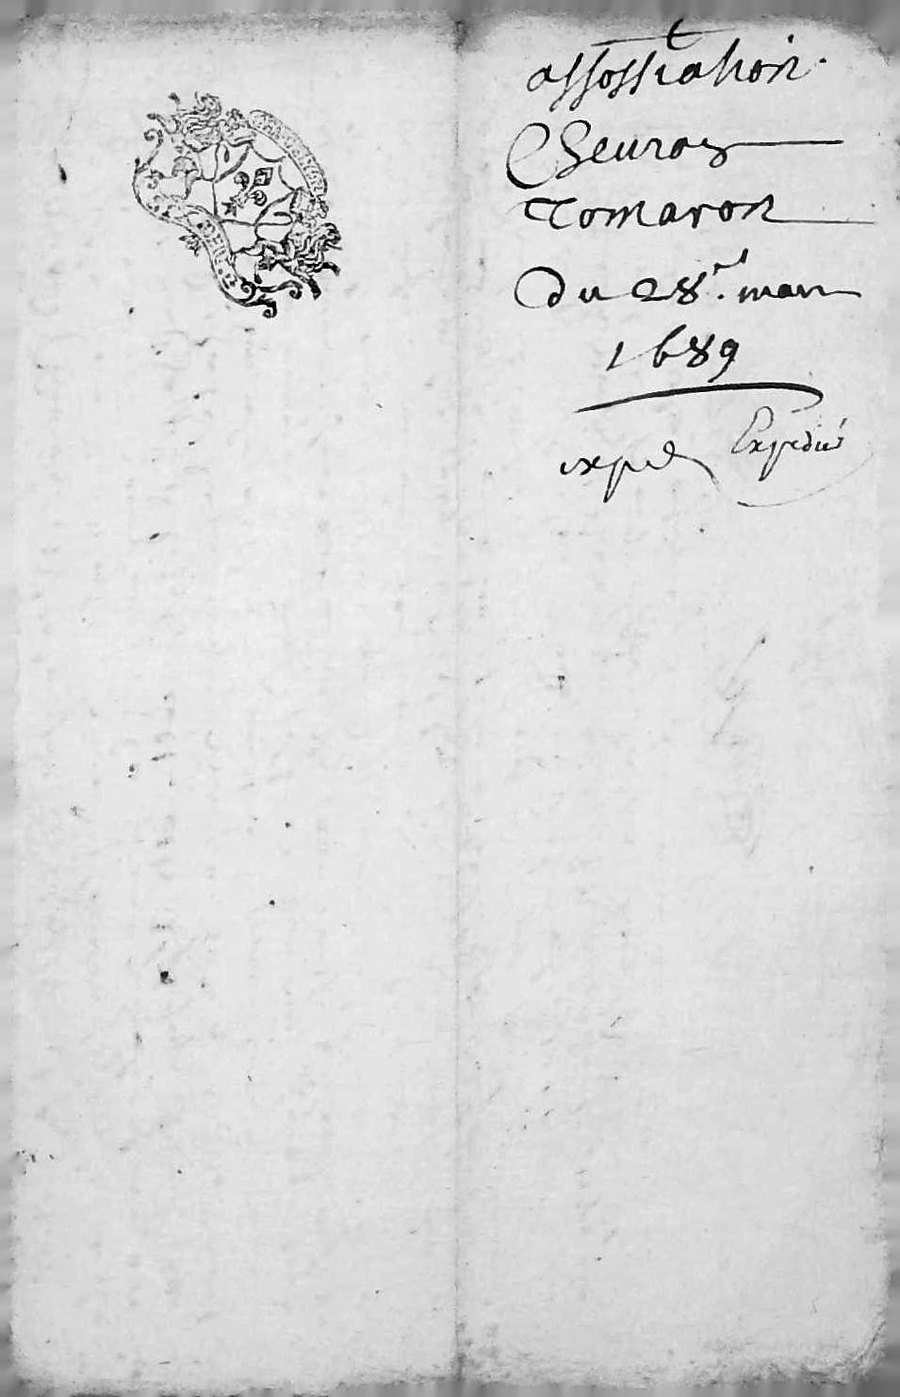 assossiation
Cheuray
Tomaron
du 28e mars
1689
exped Expedié